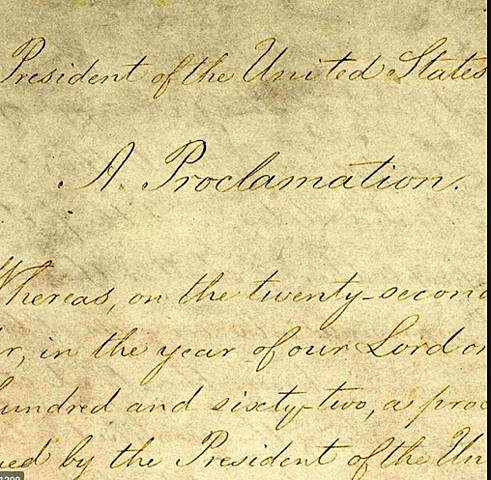 President of the United States
A Proclamation.
Whereas, on the twenty-second
r, in the year of our Lord o
hundred and sixty-two, a proc
ued by the President of the Un
1200